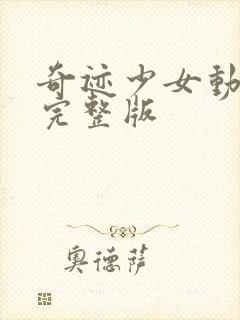 奇迹少女動
完整版
奧德薩